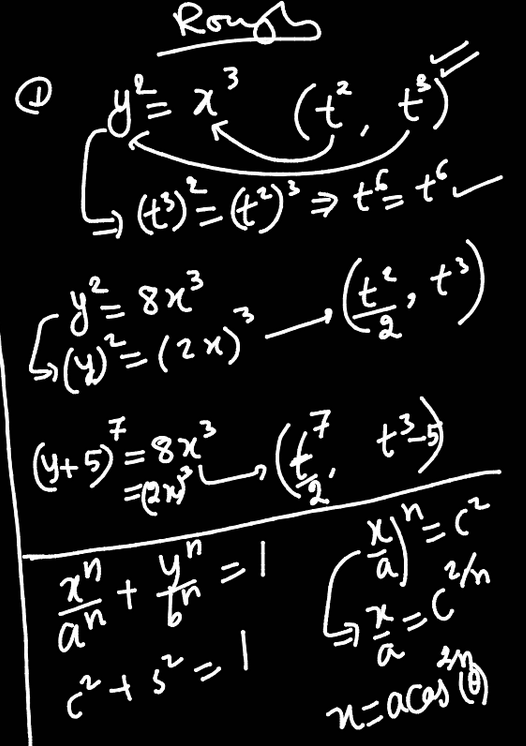 Rough
① y² = x³ (t², t³)
⇒ (t³)² = (t²)³ ⇒ t⁶ = t⁶ ✓
y² = 8x³
(y)² = (2x)³ → (t²/2, t³)
(y+5)⁷ = 8x³ → (t⁷/2, t³-5)
= (2x)³
xⁿ/aⁿ + yⁿ/bⁿ = 1
c² + s² = 1
x/a)ⁿ = c²
⇒ x/a = c^2/n
x = a cos^2/n (θ)